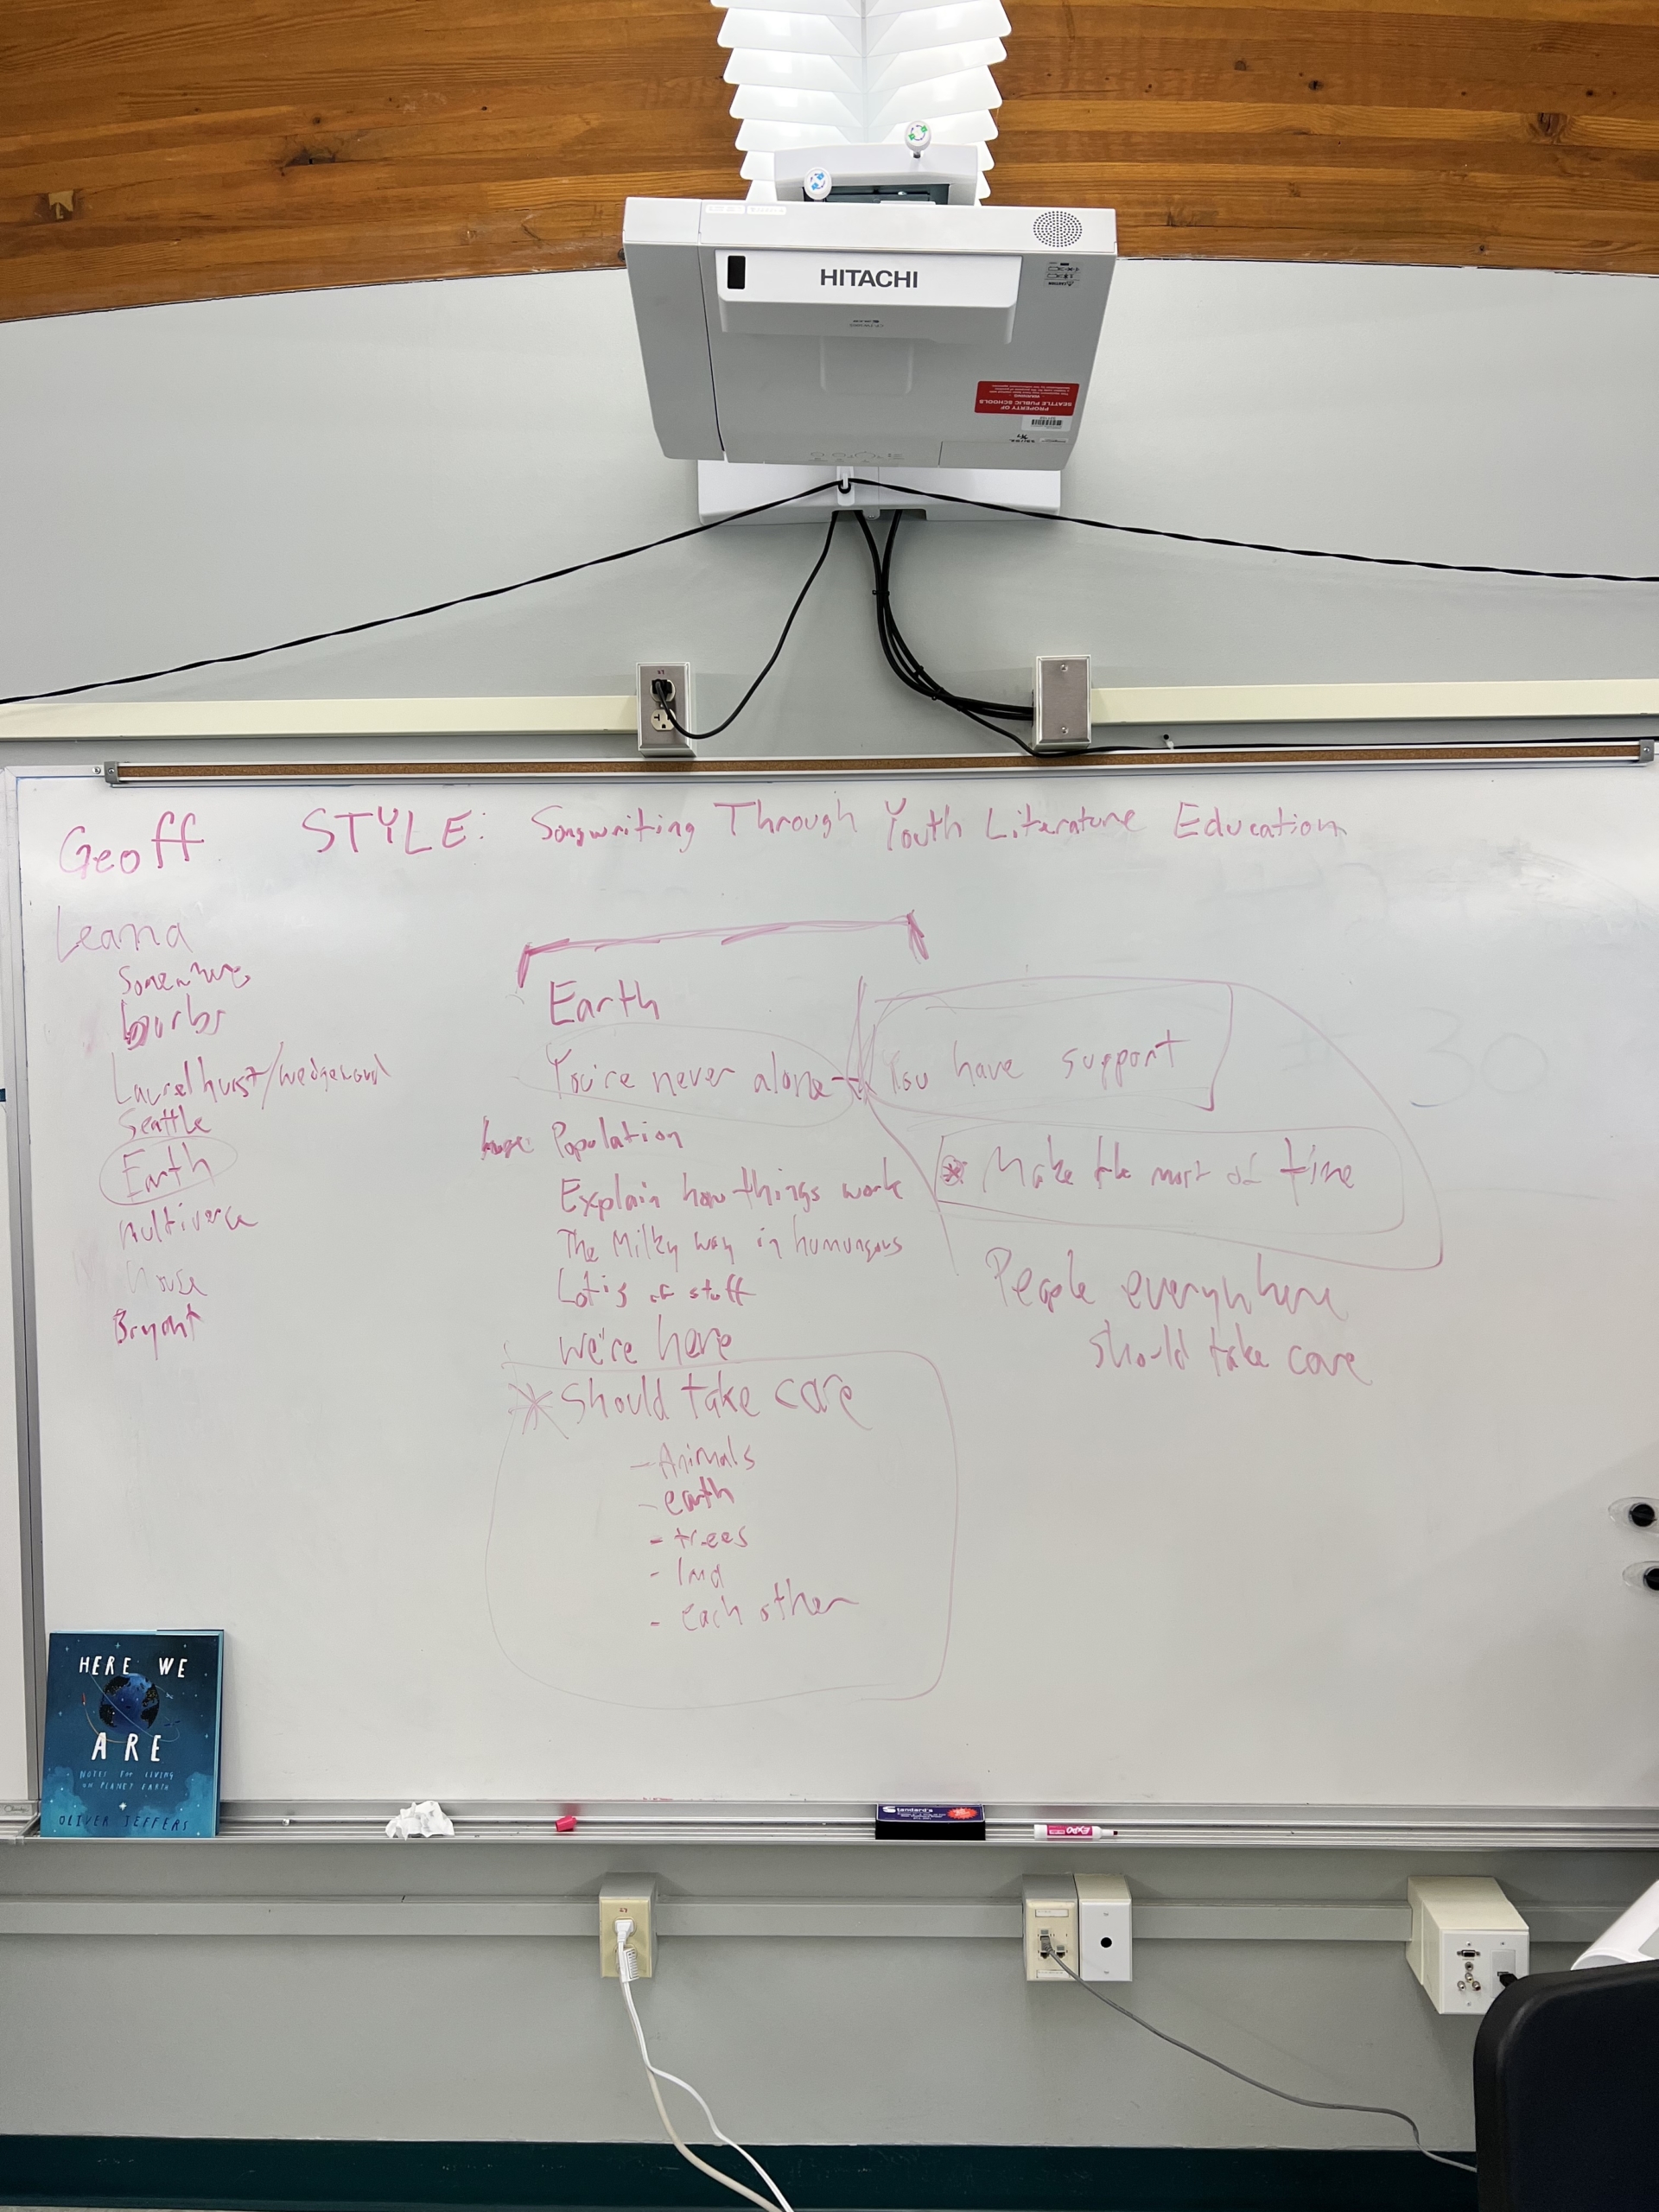 HITACHI
PROPERTY OF
SEATTLE PUBLIC SCHOOLS
WARNING
Geoff STYLE: Songwriting Through Youth Literature Education
Leana
Somewhere
burbs
Laurelhurst/wedgewood
Seattle
Earth
Multiverse
house
Bryant
Earth
You're never alone
You have support
huge Population
Explain how things work
The Milky way in humungous
Lot's of stuff
we're here
* Should take care
- Animals
- earth
- trees
- land
- each other
* Make the most of time
People everywhere
should take care
30
HERE WE
ARE
NOTES FOR LIVING
ON PLANET EARTH
OLIVER JEFFERS
Standard's
EXPO